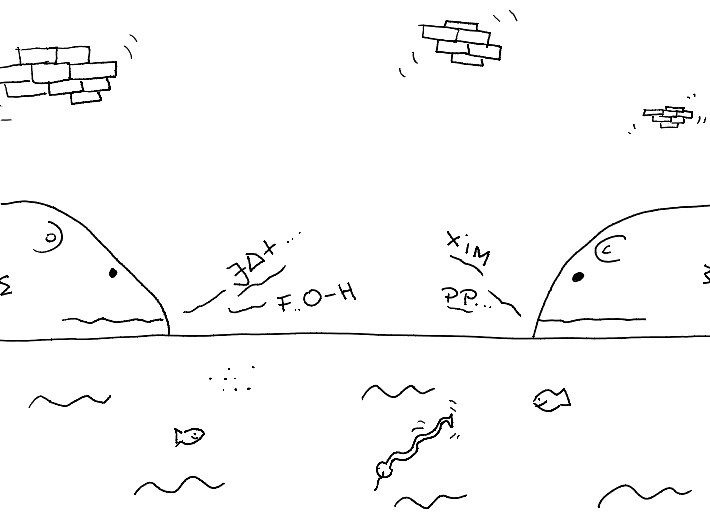 JDX...
F..O-H
XiM
PP...